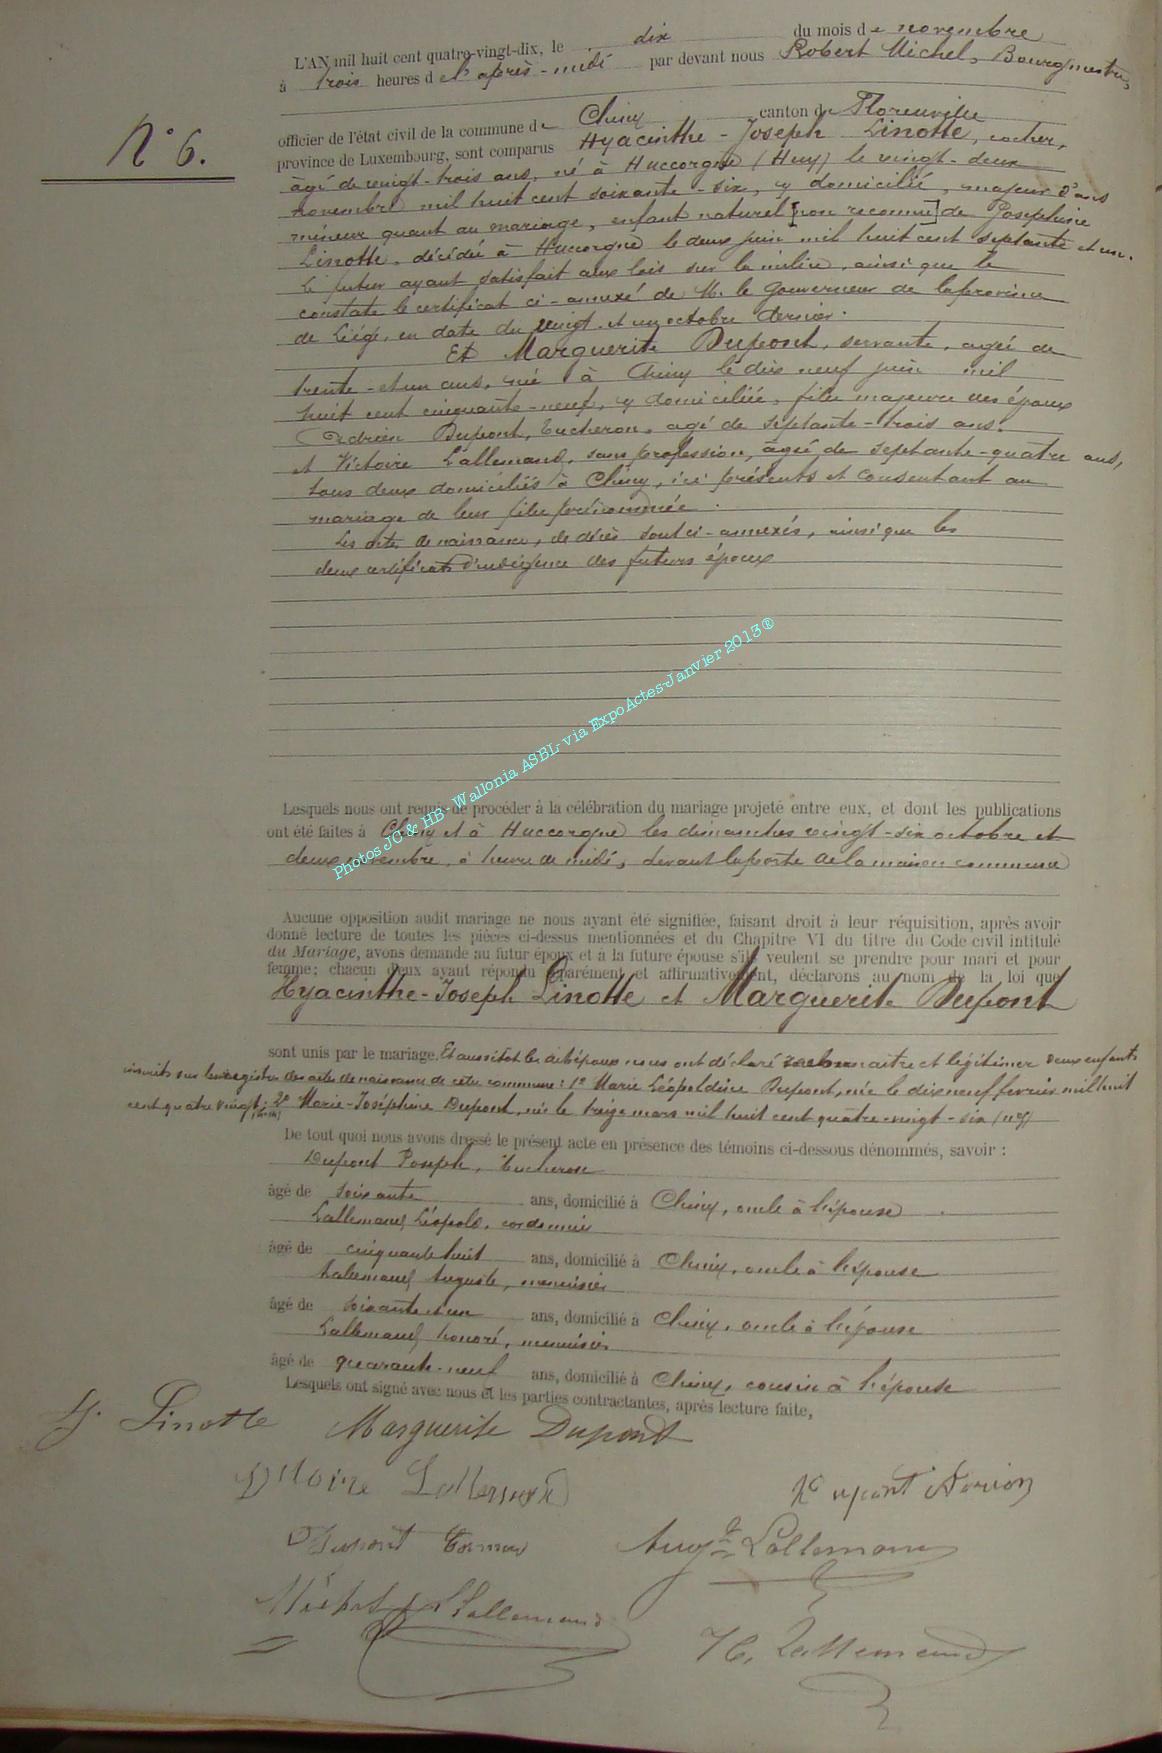 L'AN mil huit cent quatre-vingt-dix, le dix du mois de novembre
à trois heures de l'après-midi par devant nous Robert Michel, Bourgmestre,
N° 6.
officier de l'état civil de la commune de Chiny canton de Florenville
province de Luxembourg, sont comparus Hyacinthe-Joseph Linotte, cocher,
âgé de vingt-trois ans, né à Huccorgne (Huy) le vingt-deux
novembre mil huit cent soixante-six, y domicilié, majeur d'ans
mineur quant au mariage, enfant naturel [non reconnu] de Joséphine
Linotte, décédée à Huccorgne le deux juin mil huit cent septante et un.
le futur ayant satisfait aux lois sur la milice, ainsi que le
constate le certificat ci-annexé de M. le Gouverneur de la province
de Liége, en date du vingt et un octobre dernier.
Et Marguerite Dupont, servante, agée de
trente-et un ans, née à Chiny le dix neuf juin mil
huit cent cinquante-neuf, y domiciliée, fille majeure des époux
Adrien Dupont, bucheron, agé de septante-trois ans,
et Victoire Lallemand, sans profession, âgée de septante-quatre ans,
tous deux domiciliés à Chiny, ici présents et consentant au
mariage de leur fille prénommée.
Les actes de naissance, de décès sont ci-annexés, ainsi que les
deux certificats d'indigence des futurs époux
Lesquels nous ont requis de procéder à la célébration du mariage projeté entre eux, et dont les publications
ont été faites à Chiny et à Huccorgne les dimanches vingt-six octobre et
deux novembre, à heure de midi, devant la porte de la maison commune
Aucune opposition audit mariage ne nous ayant été signifiée, faisant droit à leur réquisition, après avoir
donné lecture de toutes les pièces ci-dessus mentionnées et du Chapitre VI du titre du Code civil intitulé
du Mariage, avons demandé au futur époux et à la future épouse s'ils veulent se prendre pour mari et pour
femme; chacun d'eux ayant répondu séparément et affirmativement, déclarons au nom de la loi que
Hyacinthe-Joseph Linotte et Marguerite Dupont
sont unis par le mariage. Et aussitôt les dits époux nous ont déclaré reconnaitre et légitimer deux enfants
inscrits sur les registres des actes de naissance de cette commune: 1° Marie Léopoldine Dupont, née le dix neuf fevrier mil huit
cent quatre vingt; 2° Marie-Joséphine Dupont, née le treize mars mil huit cent quatre-vingt-six
De tout quoi nous avons dressé le présent acte en présence des témoins ci-dessous dénommés, savoir :
Dupont Joseph, bucheron
âgé de soixante ans, domicilié à Chiny, oncle à l'épouse
Lallemand Léopold, cordonnier
âgé de cinquante huit ans, domicilié à Chiny, oncle à l'épouse
Lallemand Auguste, menuisier
âgé de soixante et un ans, domicilié à Chiny, oncle à l'épouse
Lallemand Honoré, menuisier
âgé de quarante-neuf ans, domicilié à Chiny, cousin à l'épouse
Lesquels ont signé avec nous et les parties contractantes, après lecture faite,
H. Linotte Marguerite Dupont
Victoire Lallemand Dupont Adrien
Dupont Augte Lallemand
Lallemand
H. Lallemand
Photos JC & HB - Wallonia ASBL- via ExpoActes-Janvier 2013®